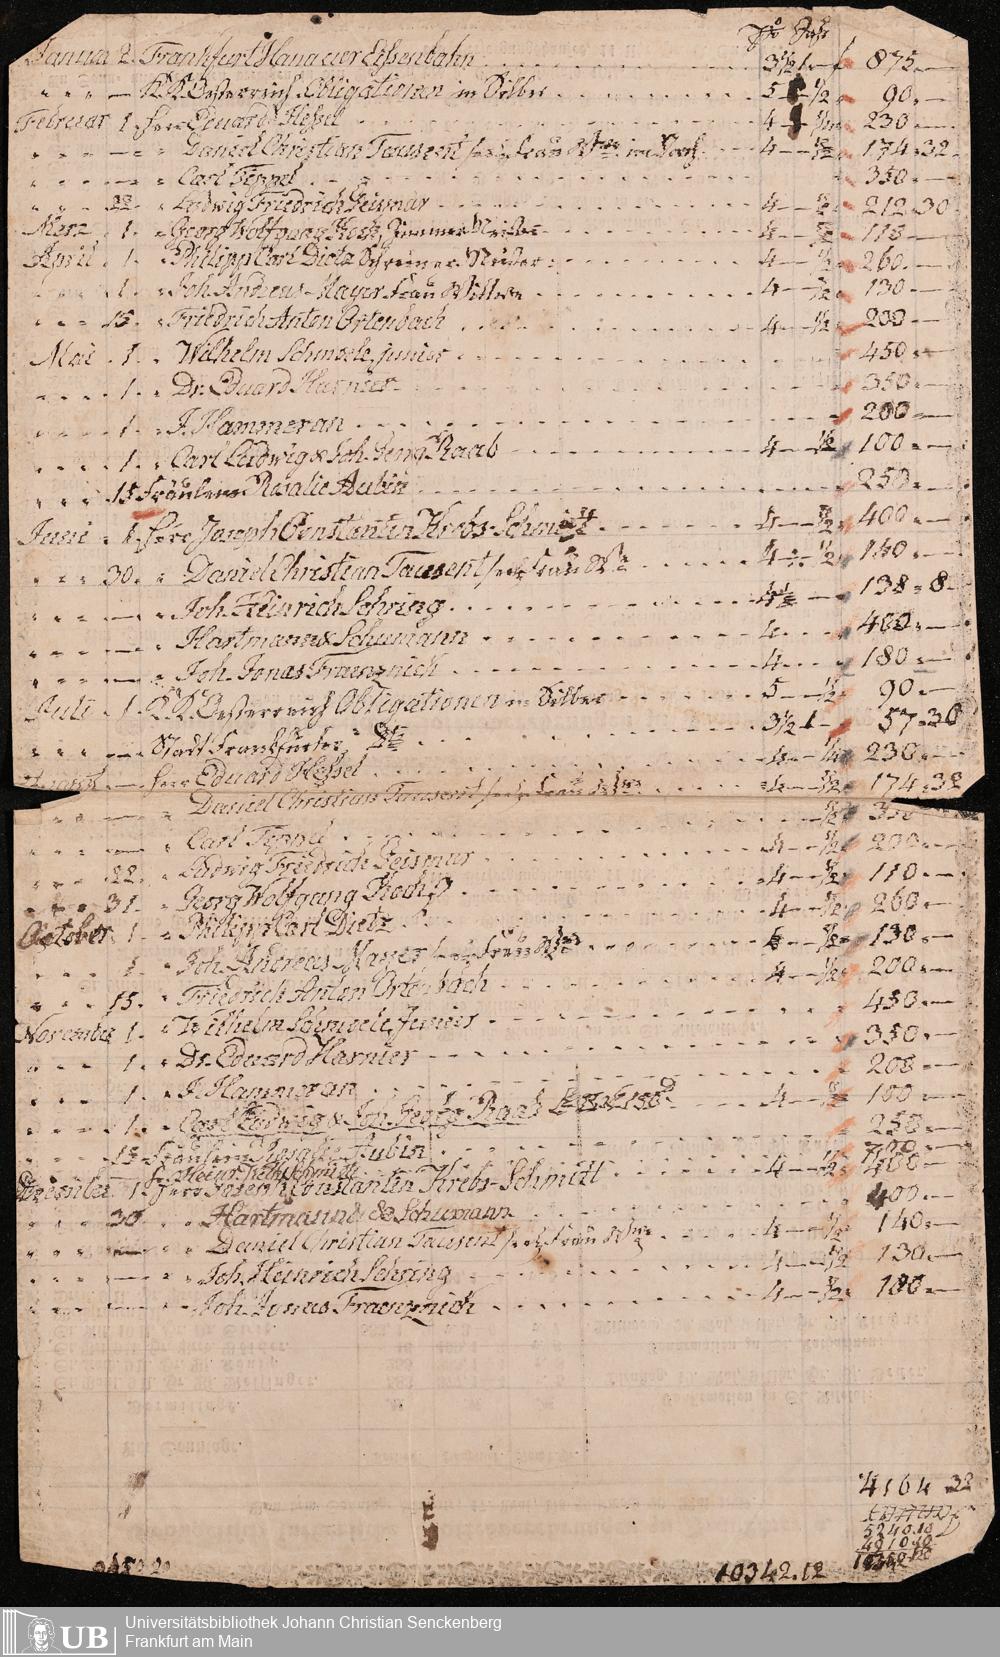 Januar 2. Frankfurt Hanauer Eisenbahn 3½ 1 - f 875.-
K.K. Oesterreich. Obligationen in Silber 5 - ½ 90.-
Februar 1. Herr Eduard Hessel 4 - ½ 230.-
Daniel Christian Tausent seel. Frau im Sachs. 4 - ½ 174.32.
Carl Teppel 350.-
22. Ludwig Friedrich Geismar 4 - ½ 212.30
Merz 1. Georg Wolfgang Koch Zimmer Meister 4 - ½ 118.-
April 1. Philipp Carl Dietz Schreiner Meister 4 - ½ 260.-
1. Joh. Andreas Mayer Frau Wittwe 4 - ½ 130.-
15. Friedrich Anton Ortenbach 4 - ½ 200.-
Mai 1. Wilhelm Schmoele, junior 450.-
1. Dr. Eduard Harnier 350.-
1. J. Hammeran 200.-
1. Carl Ludwig & Joh. Georg Raab 4 - ½ 100.-
15 Fräulein Rosalie Aubin 250.-
Juni 1. Herr Joseph Constantin Krebs-Schmitt 4 - ½ 400.-
30. Daniel Christian Tausent seel. Frau 4 - ½ 140.-
Joh. Heinrich Sehring 4½ - 138.8.
Hartmann & Schumann 4 400.-
Joh. Jonas Fraenznich 4 180.-
Juli 1. K.K. Oesterreich Obligationen in Silber 5 - ½ 90.-
Stadt Frankfurter 3½ 1 - 57.30
August - Herr Eduard Hessel 4 - ½ 230.-
Daniel Christian Tausent seel. Frau 4 - ½ 174.32
Carl Teppel ½ 350
22. Ludwig Friedrich Geismar 4 - ½ 200.-
31. Georg Wolfgang Koch 4 - ½ 110.-
October 1. Philipp Carl Dietz 4 - ½ 260.-
1. Joh. Andreas Mayer seel. Frau 4 - ½ 130.-
15. Friedrich Anton Ortenbach 4 - ½ 200.-
November 1. Wilhelm Schmoele, Junior 450.-
1. Dr. Eduard Harnier 350.-
1. J. Hammeran 200.-
1. Carl Ludwig & Joh. Georg Raab 4 - ½ 100.-
15 Fräulein Rosalie Aubin 250.-
700.-
December 1. Herr Joseph Constantin Krebs-Schmitt 4 - ½ 400.-
30. Hartmann & Schumann 400.-
Daniel Christian Tausent seel. Frau 4 - ½ 140.-
Joh. Heinrich Sehring 4 - ½ 130.-
Joh. Jonas Fraenznich 4 - ½ 180.-
4164 32
5240.10
10342.12
Universitätsbibliothek Johann Christian Senckenberg
UB Frankfurt am Main